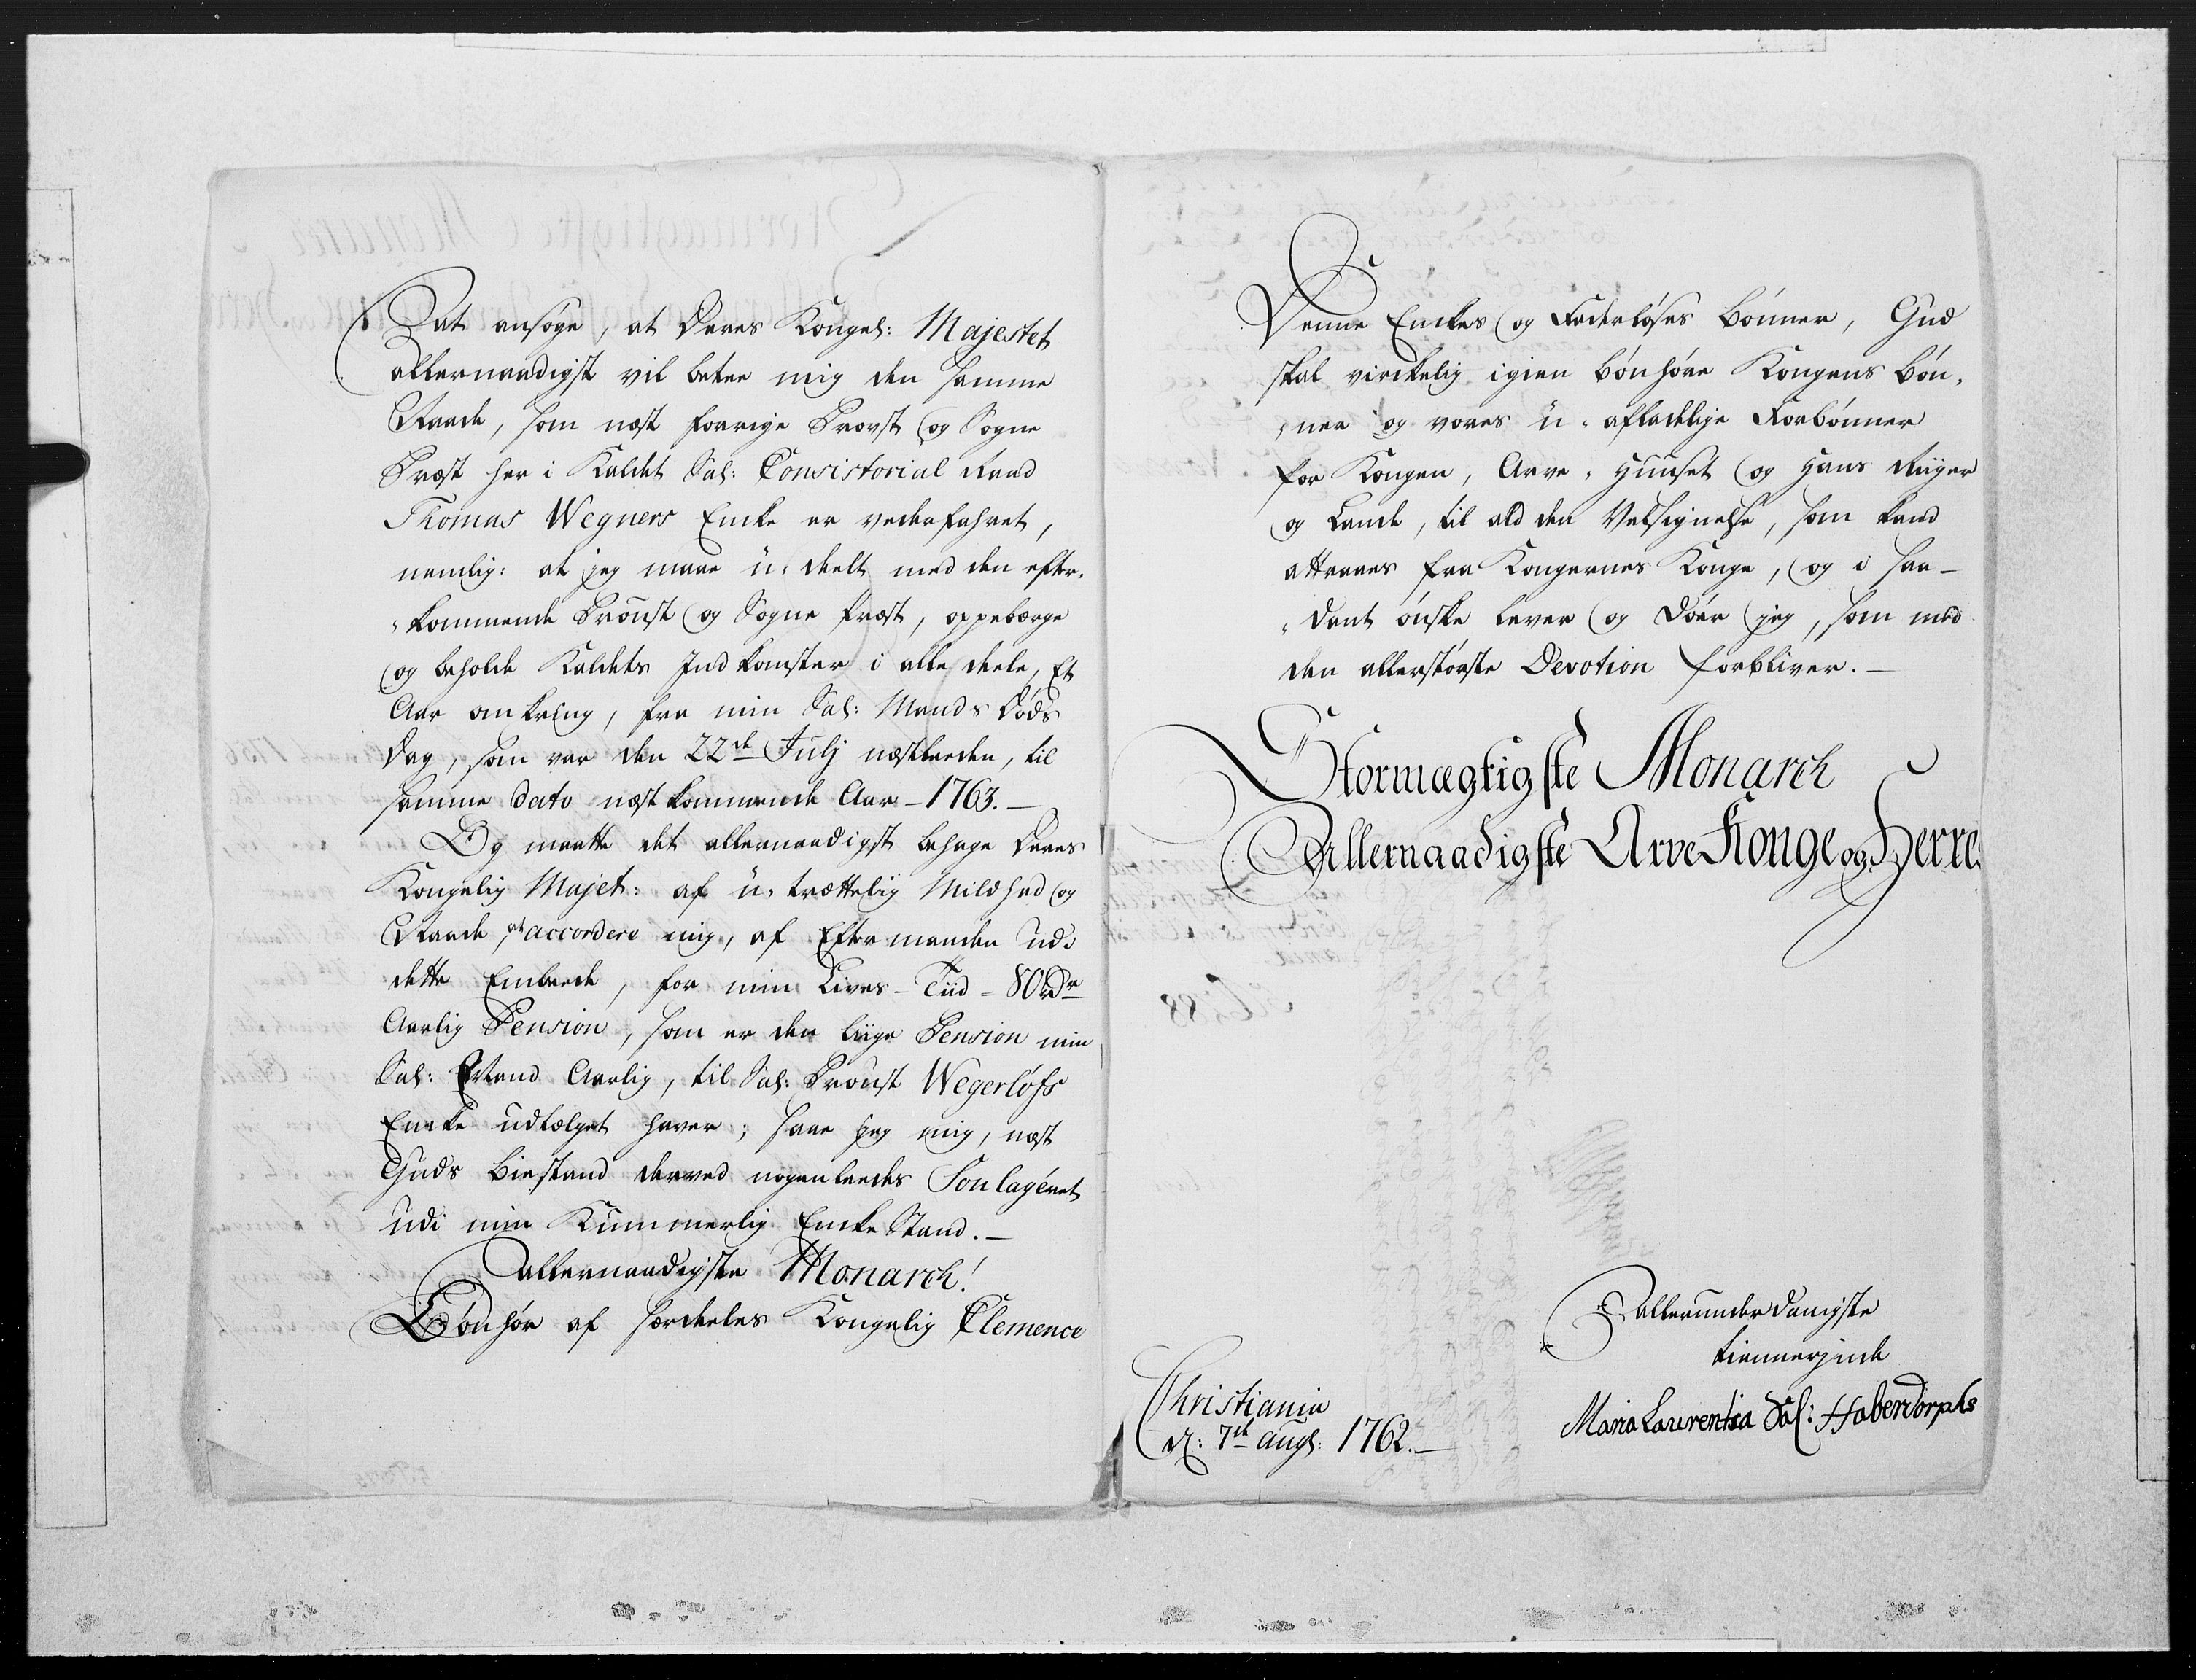 at ansøge, at Deres Kongel: Majestet
allernaadigst vil betee mig den samme
Naade, som næst forrige Provst og Sogne
Præst her i Kaldet Sal: Consistorial Raad
Thomas Wegners Encke er vederfahret,
nemlig: at jeg maae u-deelt med den efter-
-kommende Proust og Sogne Præst, oppebærge
og beholde Kaldets Indkomster i alle deele, Et
Aar omkring, fra min Sal: Mands Døds
Dag, som var den 22de Julj næstleeden, til
samme dato næstkommende Aar - 1763. -
Og maatte det allernaadigst behage Deres
Kongelig Majet: af u-trættelig Mildhed og
Naade, at accordere mig, af Eftermanden udi
dette Embede, for min Lives-Tiid - 80 rdr
Aarlig Pension, som er den liige Pension min
Sal: Mand Aarlig, til Sal: Proust Wegerløfs
Encke udtælget haver; saae jeg mig, næst
Guds Biestand derved nogenledes Soulagéret
udi min Kummerlig Encke Stand. -
allernaadigste Monarch!
Bønhør af særdeles Kongelig Clemence
Denne Enckes og Faderløses Bønner, Gud
skal virckelig igien bønhøre Kongens Bøn-
-ner og vores u-afladelige Forbønner
for Kongen, Arve-Huuset og Hans Riiger
og Lande, til ald den Velsignelse, som kand
attraaes fra Kongernes Konge, og i saa-
-dant ønske lever og døer jeg, som med
den allerstørste Devotion forbliver. -
Stormægtigste Monarch
Allernaadigste Arve Konge og Herres
allerunderdanigste
tiennerinde
Maria Laurentia Sal: Haberdorphs
Christiania
d: 7de Augs: 1762. -